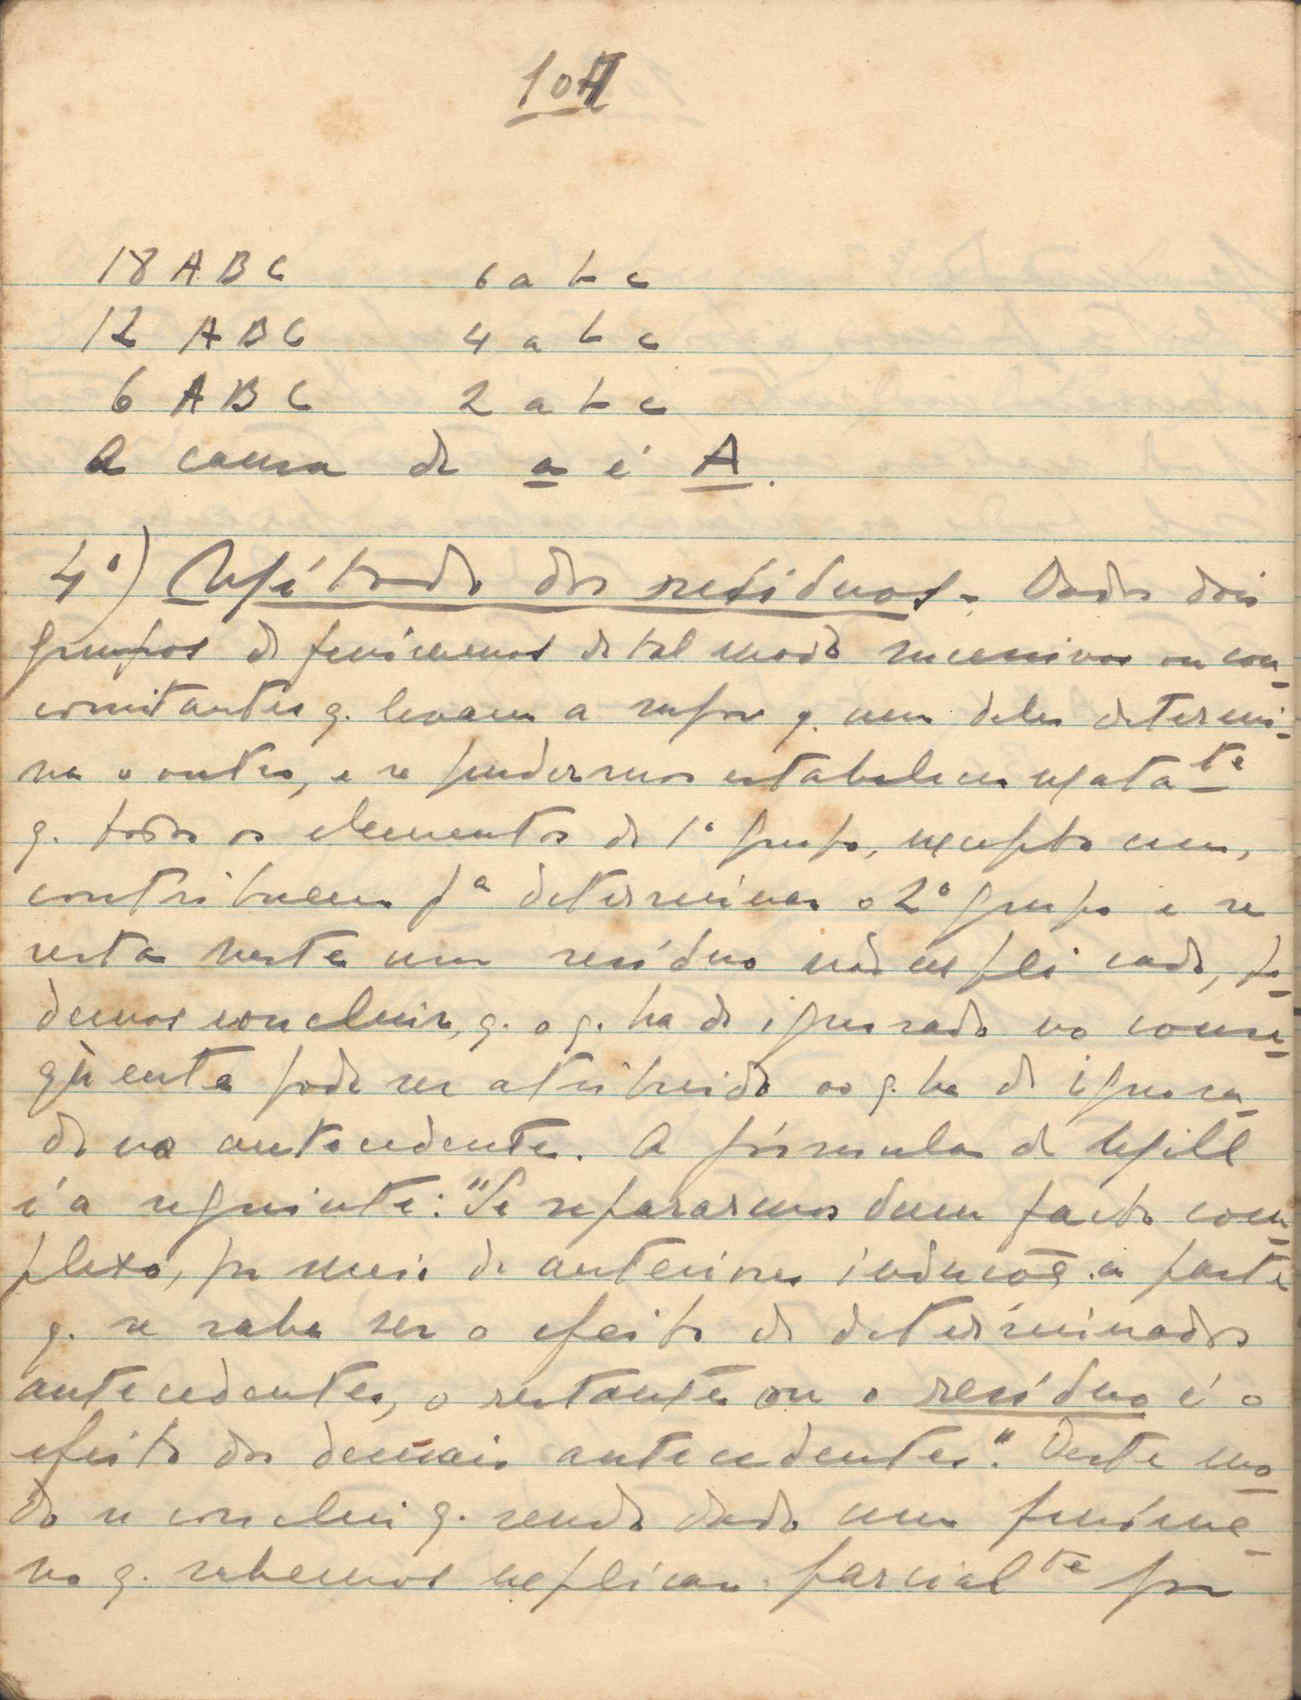 107
18 A B C 6 a b c
12 A B C 4 a b c
6 A B C 2 a b c
A causa de a é A.
4º) Método dos resíduos. Dados dois
grupos de fenómenos de tal modo sucessivos ou con-
comitantes q. levam a supor q. um deles determi-
na o outro, e se pudermos estabelecer exata-te
q. todos os elementos do 1º grupo, excepto um,
contribuem pª determinar o 2º grupo e se
resta neste um resíduo não explicado, po-
demos concluir, q. o q. ha de ignorado no conse-
qùente pode ser atribuido ao q. ha de ignora-
do no antecedente. A fórmula de Mill
é a seguinte: "Se separarmos dum facto com-
plexo, por meio de anteriores induções a parte
q. se sabe ser o efeito de determinados
antecedentes, o restante ou o resíduo é o
efeito dos demais antecedentes". Deste mo-
do se conclui q. sendo dado um fenóme-
no q. sabemos explicar parcialte por